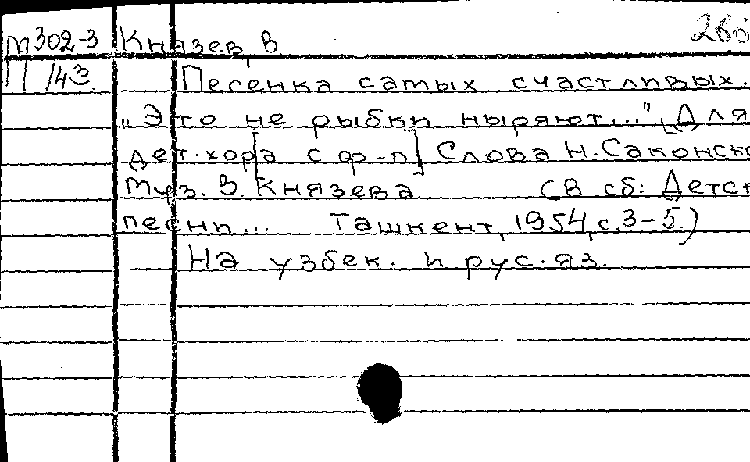 М302-3 Князев, В
П 143 Песенка самых счастливых.
„Это не рыбки ныряют..." (Для
дет. хора [с ф-п] Слова Н. Саконск
Муз. В. Князева (В сб: Детск
песни... Ташкент, 1954, с. 3-5.)
На узбек. и рус. яз.